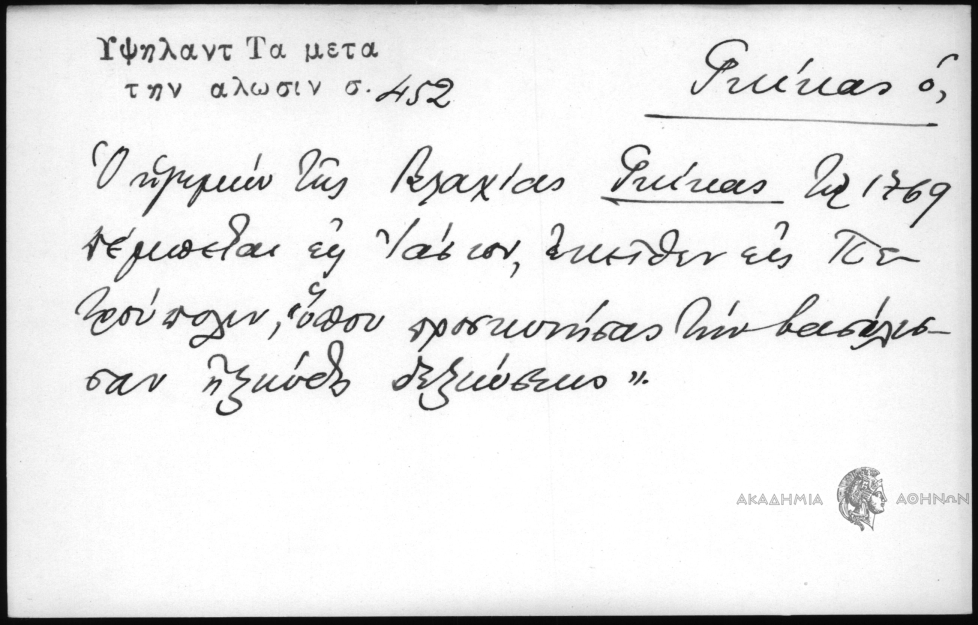 Υψηλαντ Τα μετα
την αλωσιν σ. 452
Γκίκας ὁ,
Ὁ ἡγεμὼν τῆς Βλαχίας Γκίκας τῷ 1769
πέμπεται εἰς Ἰάσιον, ἐκεῖθεν εἰς Πε-
τρούπολιν, "ὅπου προσκυνήσας τὴν βασίλισ-
σαν ἠξιώθη δεξιώσεως".
ΑΚΑΔΗΜΙΑ ΑΘΗΝΩΝ